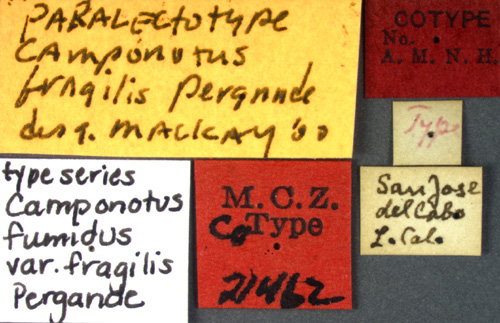 PARALECTOTYPE
CAMPONOTUS
fragilis Pergande
desg. MACKAY '00
COTYPE
No.
A. M. N. H.
Type
San Jose
del Cabo
L. Cal.
type series
Camponotus
fumidus
var. fragilis
Pergande
M. C. Z.
CoType
21462